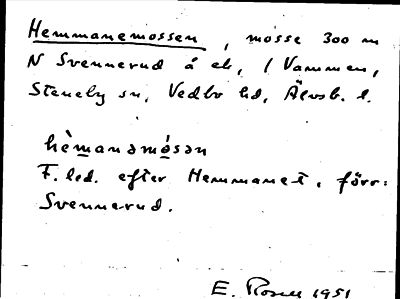 Hemmanemossen, mosse 300 m
N Svennerud å ek, / Vammen,
Steneby sn, Vedbo hd, Älvsb. l.
hèmanəmósən
F. led. efter Hemmanet, förr:
Svennerud.
E. 1951